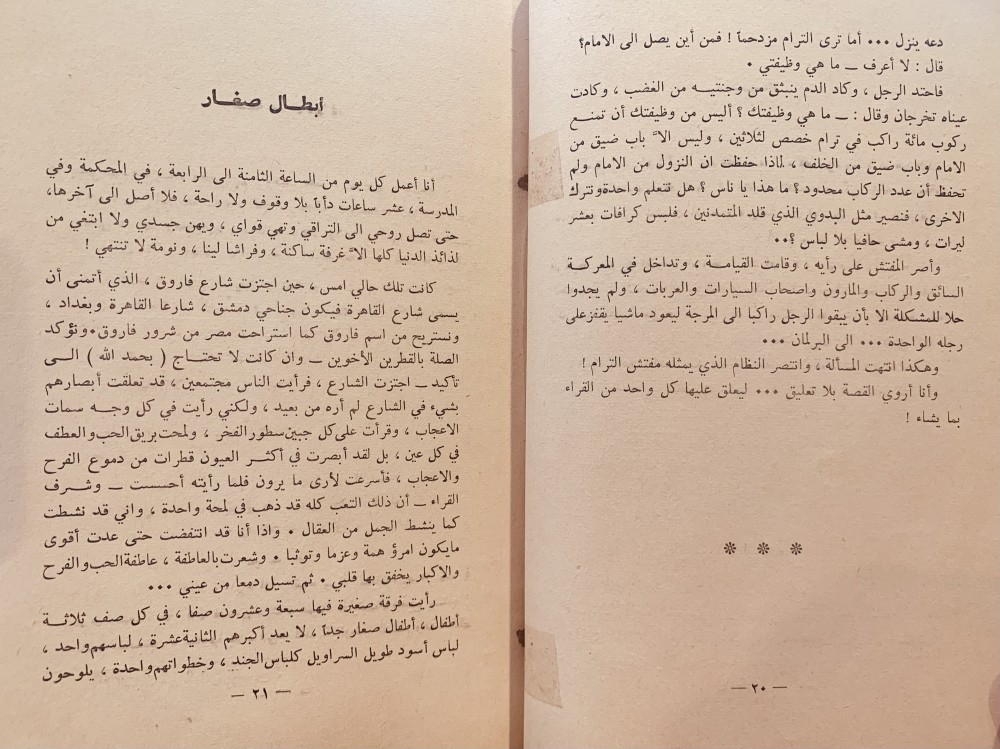 دعه ينزل ••• أما ترى الترام مزدحماً ! فمن أين يصل الى الامام؟
قال : لا أعرف ــ ما هي وظيفتي •
فاحتد الرجل ، وكاد الدم ينبثق من وجنتيــه من الغضب ، وكادت
عيناه تخرجان وقال : ــ ما هي وظيفتك ؟ أليس من وظيفتك أن تمنــع
ركوب مائة راكب في ترام خصص لثلاثين ، وليس الاَّ باب ضيق من
الامام وباب ضيق من الخلف ، لماذا حفظت ان النزول من الامام ولم
تحفظ أن عدد الركاب محدود؟ ما هذا يا ناس ؟ هل تتعلم واحدة وتترك
الاخرى ، فنصير مثل البدوي الذي قلد المتمدنين ، فلبس كرافات بعشر
ليرات ، ومشى حافيا بلا لباس ؟••
وأصر المفتش على رأيه ، وقامت القيامــة ، وتداخل في المعركــة
السائق والركاب والمارون واصحاب السيارات والعربات ، ولم يجدوا
حلا للمشكلة الا بأن يبقوا الرجل راكبا الى المرجة ليعود ماشيا يقفز على
رجله الواحدة ••• الى البرلمان •••
وهكذا انتهت المسألة ، وانتصر النظام الذي يمثله مفتش الترام !
وأنا أروي القصة بلا تعليق ••• ليعلق عليها كل واحد من القراء
بما يشاء !
❊ ❊ ❊
ــ ٢٠ ــ
أبطــال صغــار
أنا أعمل كل يوم من الساعة الثامنة الى الرابعة ، في المحكمة وفي
المدرسة ، عشر ساعات دأباً بلا وقوف ولا راحة ، فلا أصل الى آخرها،
حتى تصل روحي الى التراقي وتهي قواي ، ويهن جسدي ولا ابتغي من
لذائذ الدنيا كلها الاَّ غرفة ساكنة ، وفراشا لينا ، ونومة لا تنتهي !
كانت تلك حالي امس ، حين اجتزت شارع فاروق ، الذي أتمنى أن
يسمى شارع القاهرة فيكون جناحي دمشق ، شارعا القاهرة وبغداد ،
ونستريح من اسم فاروق كما استراحت مصر من شرور فاروق• ونؤكد
الصلة بالقطرين الأخوين ــ وان كانت لا تحتــاج ( بحمد الله ) الــى
تأكيد ــ اجتزت الشارع ، فرأيت الناس مجتمعين ، قد تعلقت أبصارهم
بشيء في الشارع لم أره من بعيد ، ولكني رأيت في كل وجــه سمات
الاعجاب ، وقرأت على كل جبين سطور الفخر ، ولمحت بريق الحب والعطف
في كل عين ، بل لقد أبصرت في أكثــر العيون قطرات من دموع الفرح
والاعجاب ، فأسرعت لأرى ما يرون فلما رأيته أحسست ــ وشــرف
القراء ــ أن ذلك التعب كله قد ذهب في لمحة واحدة ، واني قد نشطت
كما ينشط الجمل من العقال • واذا أنا قد انتفضت حتى عدت أقوى
مايكون امرؤ همة وعزما وتوثبا • وشعرت بالعاطفة ، عاطفة الحب والفرح
والاكبار يخفق بها قلبي • ثم تسيل دمعا من عيني •••
رأيت فرقة صغيرة فيها سبعة وعشرون صفا ، في كل صف ثلاثــة
أطفال ، أطفال صغار جداً ، لا يعد أكبرهم الثانية عشرة ، لباسهم واحد ،
لباس أسود طويل السراويل كلباس الجند ، وخطواتهم واحدة ، يلوحون
ــ ٢١ ــ